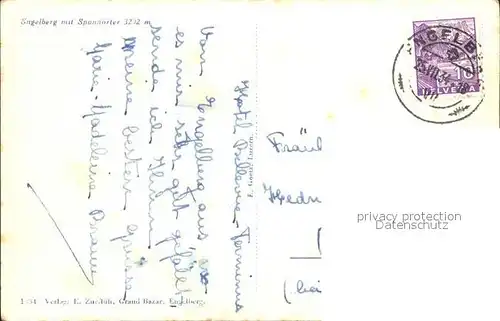 Engelberg mit Spannörter 3202 m
Hotel Bellevue-Terminus
Von Engelberg aus wo
es mir sehr gut gefällt
sende ich Ihnen
meine besten Grüsse
Marie-Madeleine
ENGELBERG
10
HELVETIA
E. Goetz, Luzern.
Fräul
Hedw
(bei
privacy protection
Datenschutz
1454 Verlag: E. Zurflüh, Grand Bazar, Engelberg.